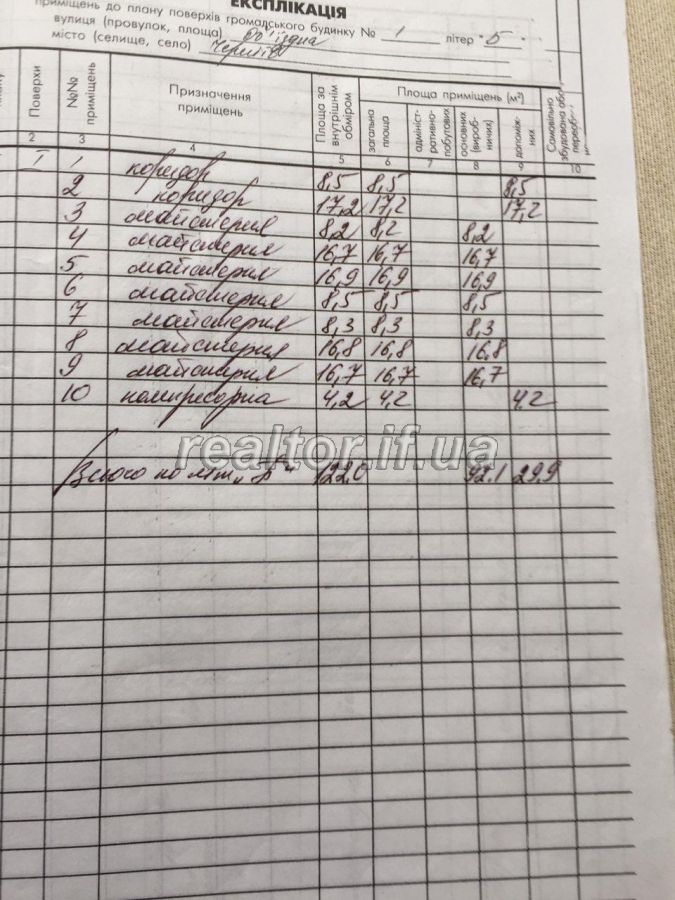 ЕКСПЛІКАЦІЯ
приміщень до плану поверхів громадського будинку № 1 літер "Б"
вулиця (провулок, площа) Об'їздна
місто (селище, село) Черніїв
Поверхи
№№ приміщень
Призначення приміщень
Площа за внутрішнім обміром
Площа приміщень (м²)
загальна площа
адмініст-ративно-побутових
основних (вироб-ничих)
допоміж-них
Самовільно збудована або переоб
2 3 4 5 6 7 8 9 10
I 1 коридор 8,5 8,5 8,5
2 коридор 17,2 17,2 17,2
3 майстерня 8,2 8,2 8,2
4 майстерня 16,7 16,7 16,7
5 майстерня 16,9 16,9 16,9
6 майстерня 8,5 8,5 8,5
7 майстерня 8,3 8,3 8,3
8 майстерня 16,8 16,8 16,8
9 майстерня 16,7 16,7 16,7
10 компресорна 4,2 4,2 4,2
realtor.if.ua
Всього по літ. „Б" 122,0 92,1 29,9